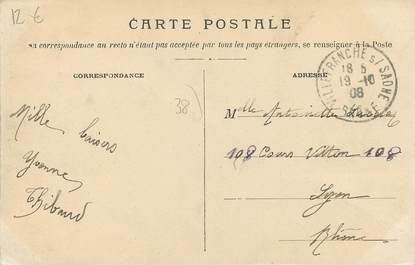 12 €
CARTE POSTALE
La correspondance au recto n'étant pas acceptée par tous les pays étrangers, se renseigner à la Poste
CORRESPONDANCE
ADRESSE
VILLEFRANCHE s/ SAONE
18 5
19 -10
08
RHONE
38)
Mille baisers
Yvonne
Thibaud
Melle Antoinette
108 Cours Vitton 108
Lyon
Rhône